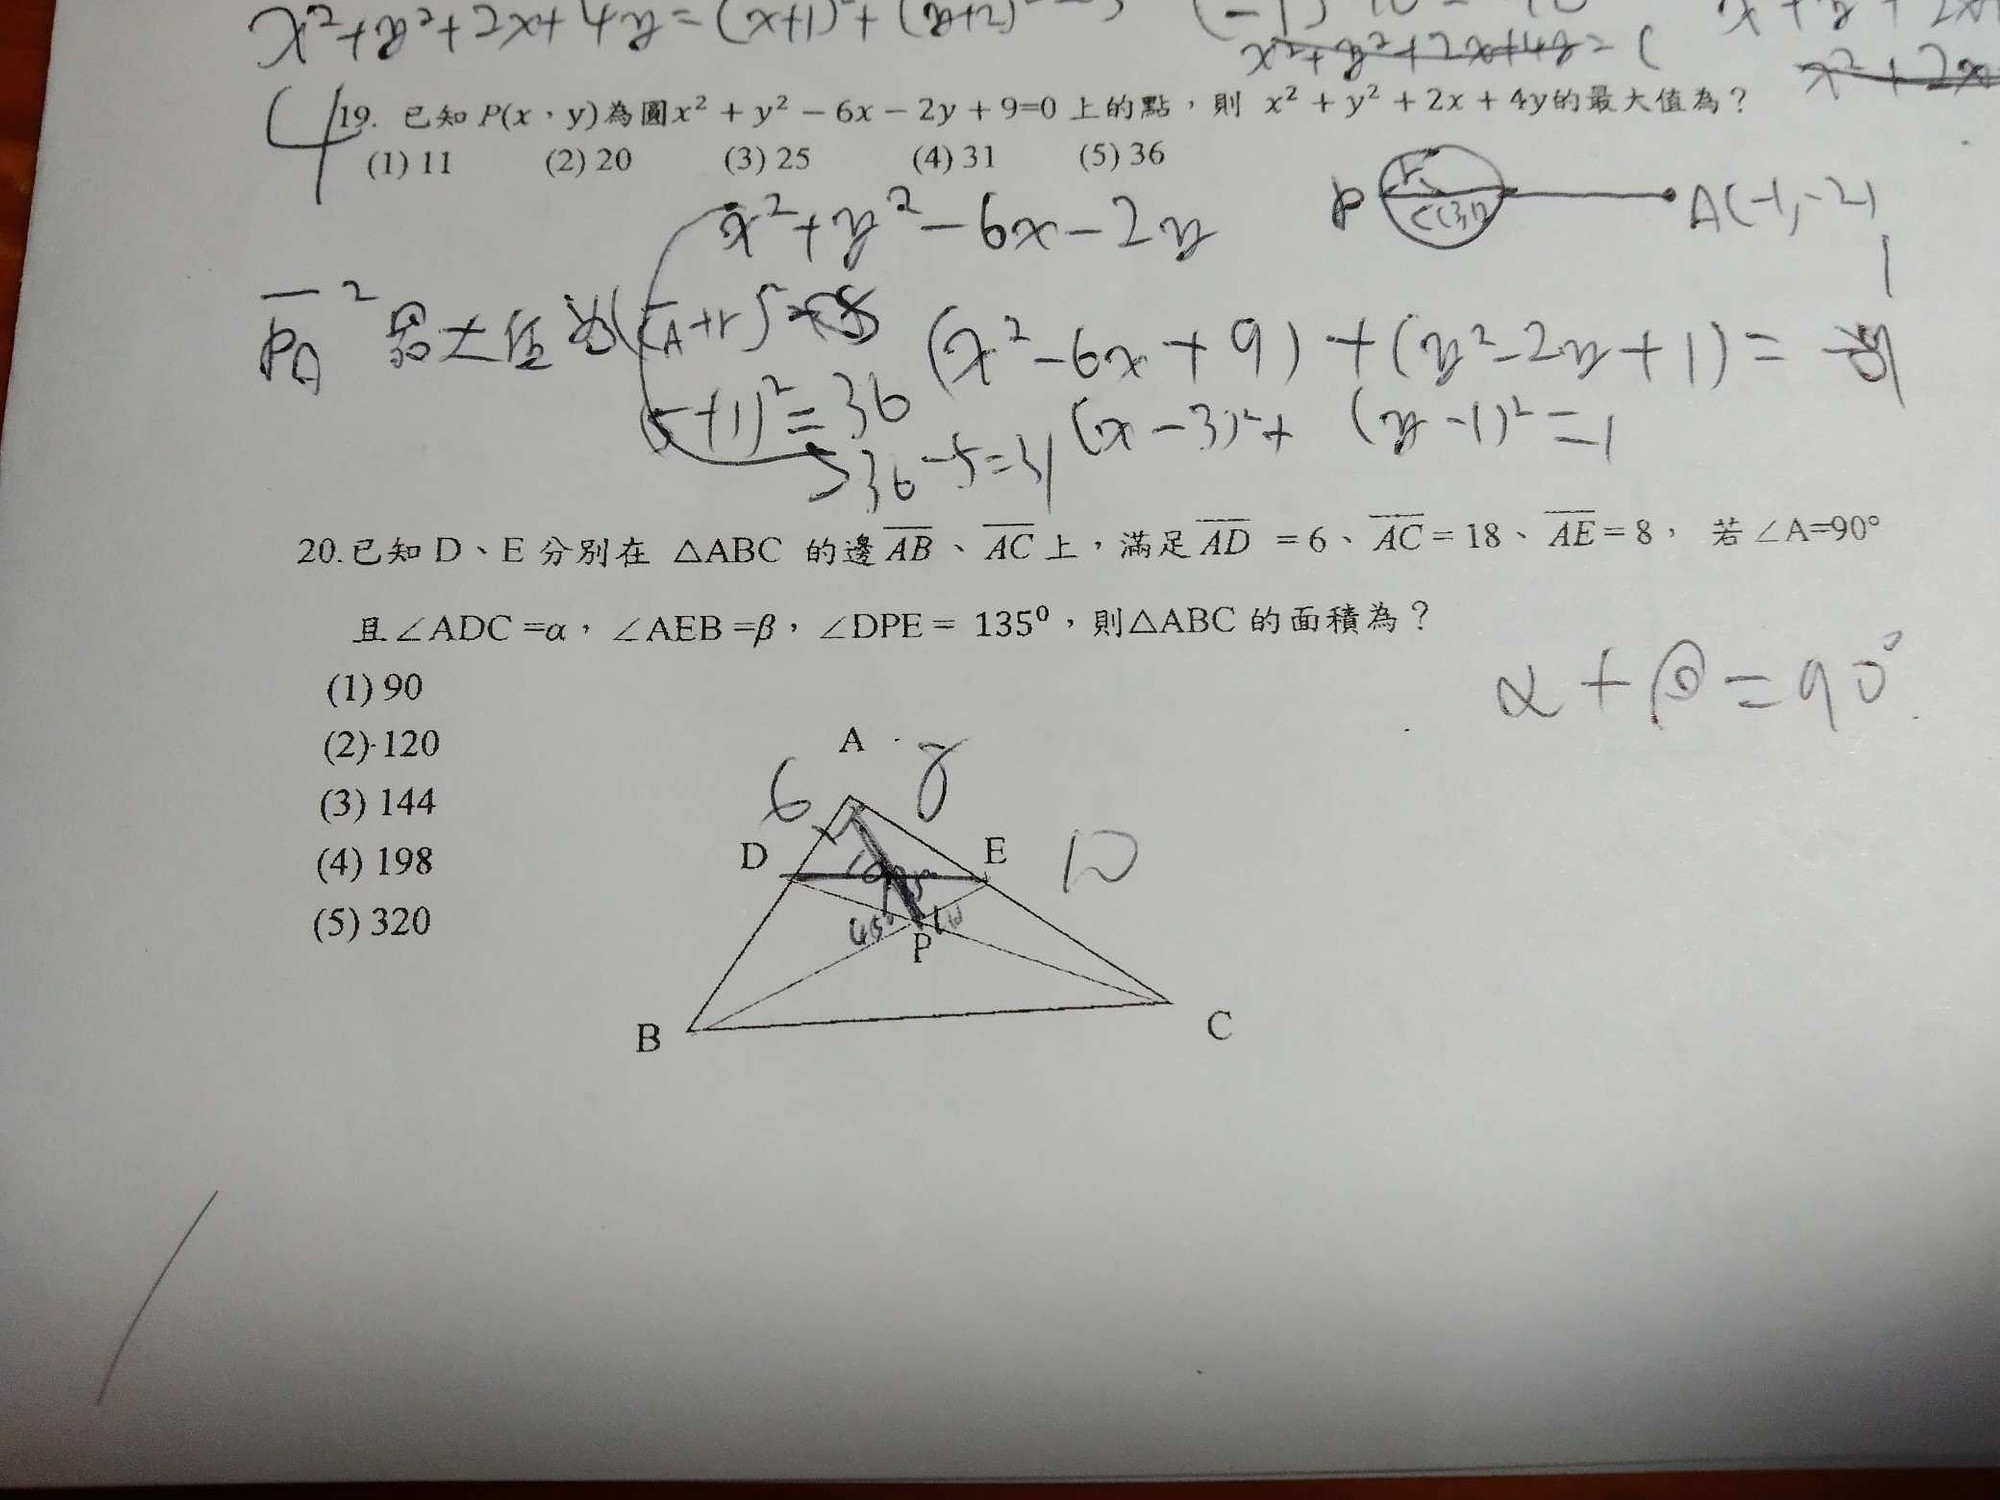 x²+y²+2x+4y=(x+1)²+(y+2)²-5
x²+y²+2x+4y=(
x²+2x
4
19. 已知 P(x，y)為圓x² + y² − 6x − 2y + 9=0 上的點，則 x² + y² + 2x + 4y的最大值為？
(1) 11 (2) 20 (3) 25 (4) 31 (5) 36
P r C(3,1) A(-1,-2)
x²+y²-6x-2y
PA² 最大值為(CA+r)²
(x²-6x+9)+(y²-2y+1)=
(5+1)²=36
(x-3)²+(y-1)²=1
36-5=31
20.已知 D、E 分別在 △ABC 的邊AB、AC上，滿足AD =6、AC=18、AE=8， 若∠A=90°
且∠ADC =α，∠AEB =β，∠DPE = 135⁰，則△ABC 的面積為？
α+β=90°
(1) 90
(2) 120
(3) 144
(4) 198
(5) 320
A
6 8
D E 10
45°
P
B C